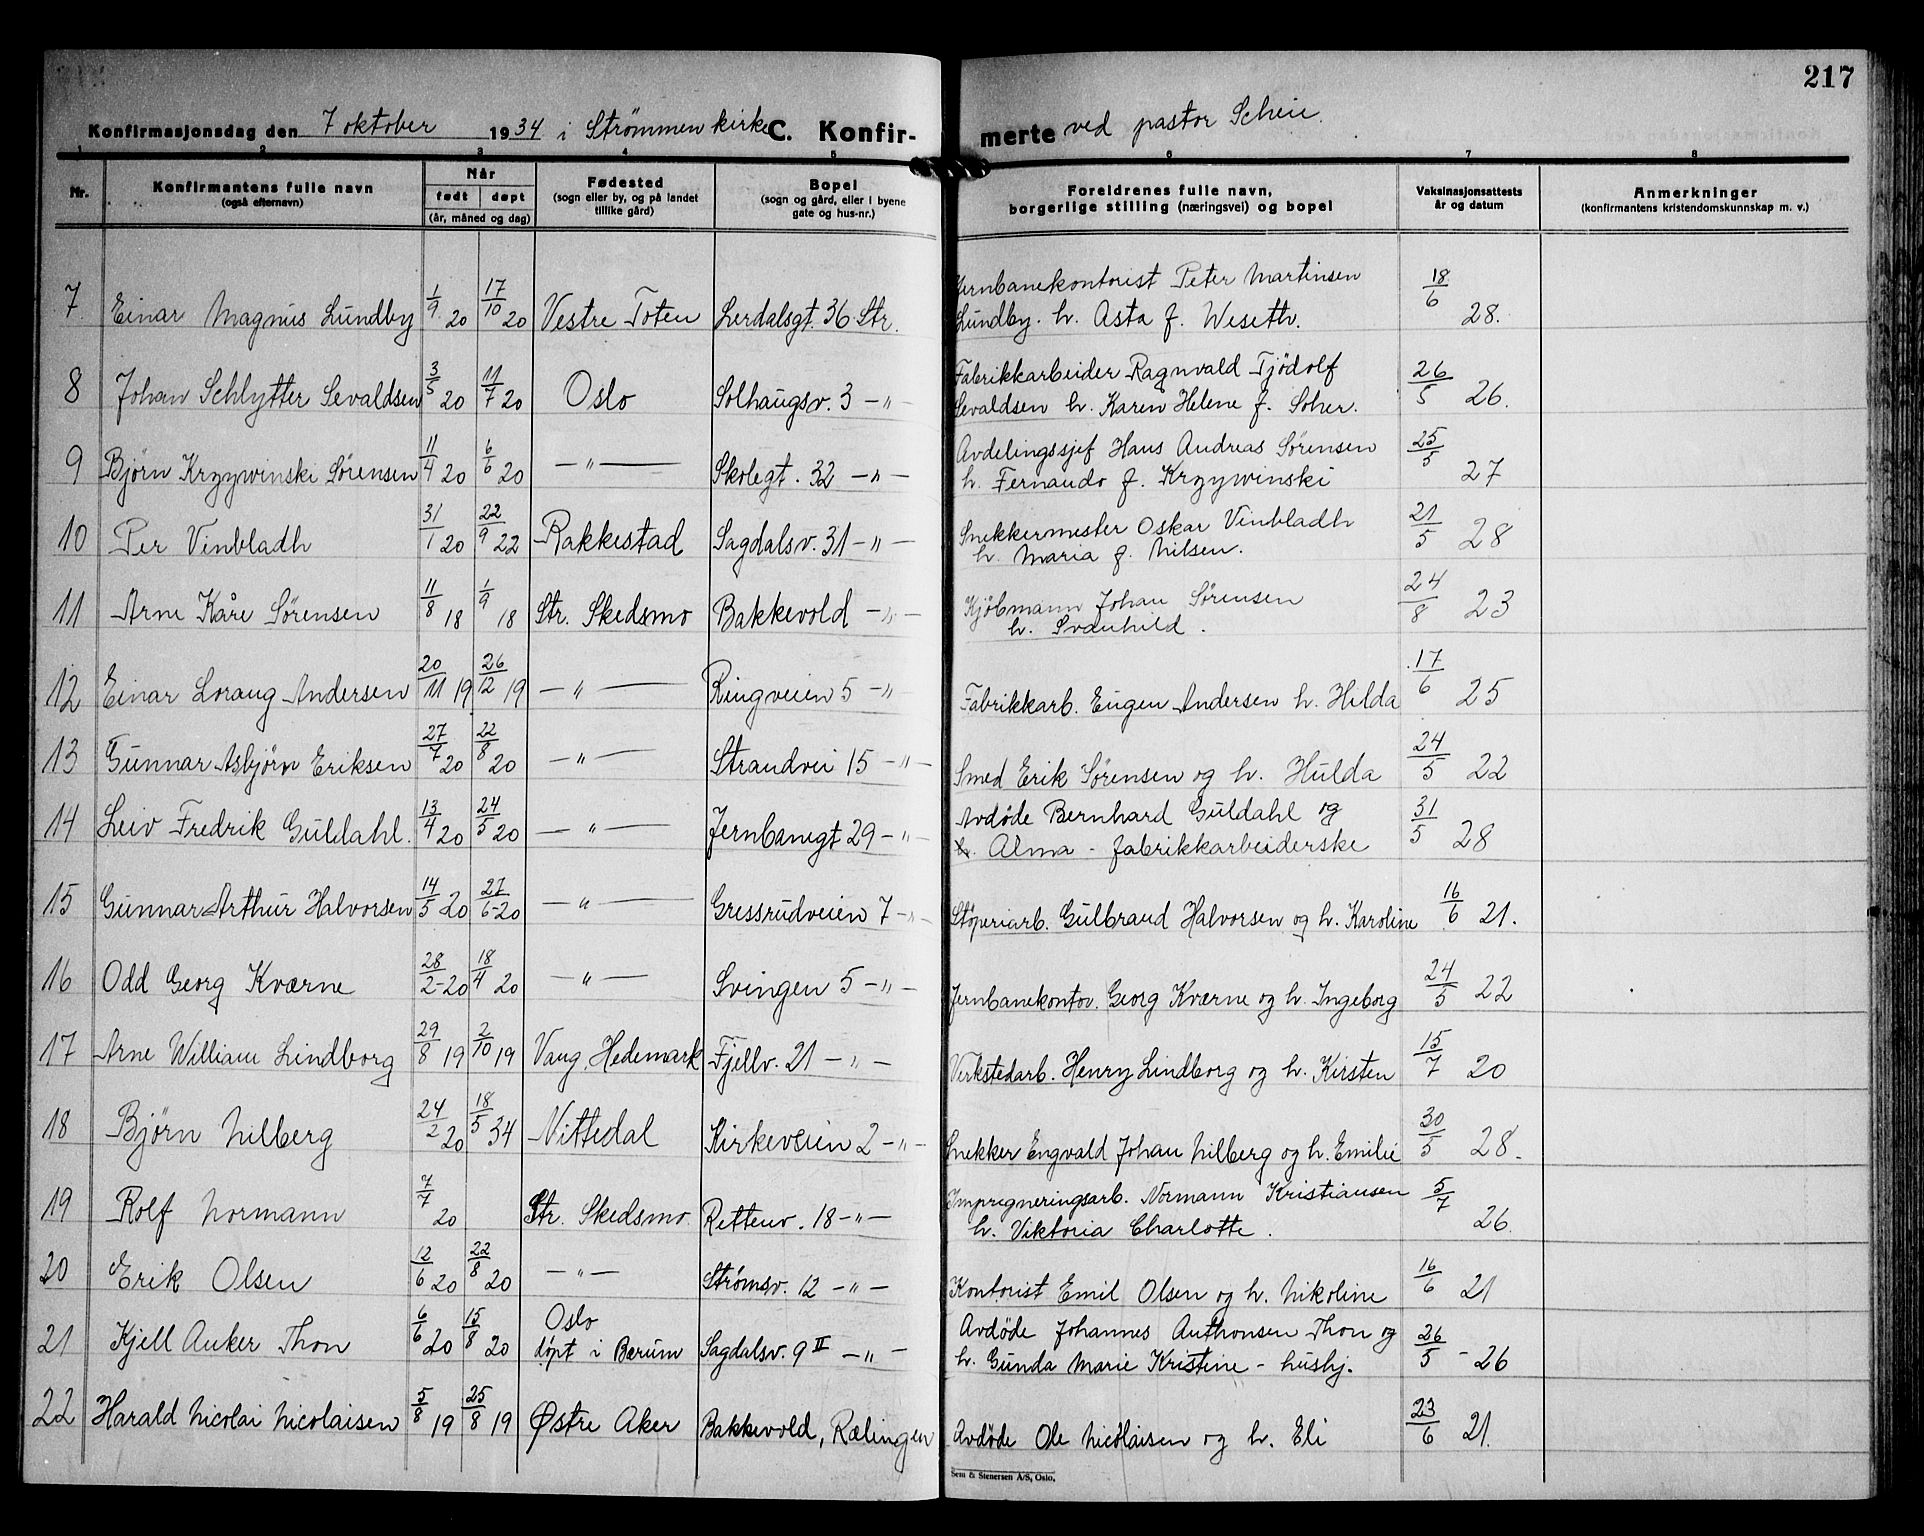 217
Konfirmasjonsdag den 7 oktober 1934 i Strømmen kirke C. Konfirmerte ved pastor Scheie.
1 2 3 4 5 6 7 8
Nr. Konfirmantens fulle navn (også efternavn) Når født døpt (år, måned og dag) Fødested (sogn eller by, og på landet tillike gård) Bopel (sogn og gård, eller i byene gate og hus-nr.) Foreldrenes fulle navn, borgerlige stilling (næringsvei) og bopel Vaksinasjonsattests år og datum Anmerkninger (konfirmantens kristendomskunnskap m. v.)
7 Einar Magnus Lundby 1/9 20 17/10 20 Vestre Toten Lerdalsgt. 36 Str. Jernbanekontorist Peter Martinsen Lundby. h. Asta f. Weseth. 18/6 28.
8 Johan Schlytter Sevaldsen 3/5 20 11/7 20 Oslo Solhaugsv. 3 -"- Fabrikkarbeider Ragnvald Tjödolf Sevaldsen h. Karen Helene f. Soher. 26/5 26.
9 Bjørn Krzywinski Sørensen 11/4 20 6/6 20 -"- Skolegt. 32 -"- Avdelingssjef Hans Andreas Sørensen h. Fernando f. Krzywinski 25/5 27
10 Per Vinbladh 31/1 20 22/9 22 Rakkestad Sagdalsv. 31 -"- Snekkermester Oskar Vinbladh h. Maria f. Nilsen. 21/5 28
11 Arne Kåre Sørensen 11/8 18 1/9 18 Str. Skedsmo Bakkevold -"- Kjöbmann Johan Sørensen h. Svanhild. 24/8 23
12 Einar Lorang Andersen 20/11 19 26/12 19 -"- Ringveien 5 -"- Fabrikkarb. Eugen Andersen h. Hilda 17/6 25
13 Gunnar Asbjørn Eriksen 27/7 20 22/8 20 -"- Strandvei 15 -"- Smed Erik Sørensen og h. Hulda 24/5 22
14 Leiv Fredrik Guldahl. 13/4 20 24/5 20 -"- Jernbanegt 29 -"- Avdöde Bernhard Guldahl og h. Alma - fabrikkarbeiderske 31/5 28
15 Gunnar Arthur Halvorsen 14/5 20 27/6-20 -"- Gressrudveien 7 -"- Støperiarb. Gulbrand Halvorsen og h. Karoline 16/6 21.
16 Odd Georg Kværne 28/2-20 18/4 20 -"- Svingen 5 -"- Jernbanekontor. Georg Kværne og h. Ingeborg 24/5 22
17 Arne William Lindborg 29/8 19 2/10 19 Vang, Hedemark Fjellv. 21 -"- Verkstedarb. Henry Lindborg og h. Kirsten 15/7 20
18 Bjørn Nilberg 24/2 20 18/5 34 Nittedal Kirkeveien 2 -"- Snekker Engvald Johan Nilberg og h. Emilie 30/5 28.
19 Rolf Normann 7/7 20 Str. Skedsmo. Rettenv. 18 -"- Impregneringsarb. Normann Kristiansen h. Viktoria Charlotte. 5/7 26.
20 Erik Olsen 12/6 20 22/8 20 -"- Strømsv. 12 -"- Kontorist Emil Olsen og h. Nikoline 16/6 21
21 Kjell Anker Thon 6/6 20 15/8 20 Oslo døpt i Bærum Sagdalsv. 9 II -"- Avdöde Johannes Anthonsen Thon og h. Gunda Marie Kristine - hushj. 26/5 - 26
22 Harald Nicolai Nicolaisen 5/8 19 25/8 19 Østre Aker Bakkevold, Rælingen Avdöde Ole Nicolaisen og h. Eli 23/6 21.
Sem & Stenersen A/S, Oslo.